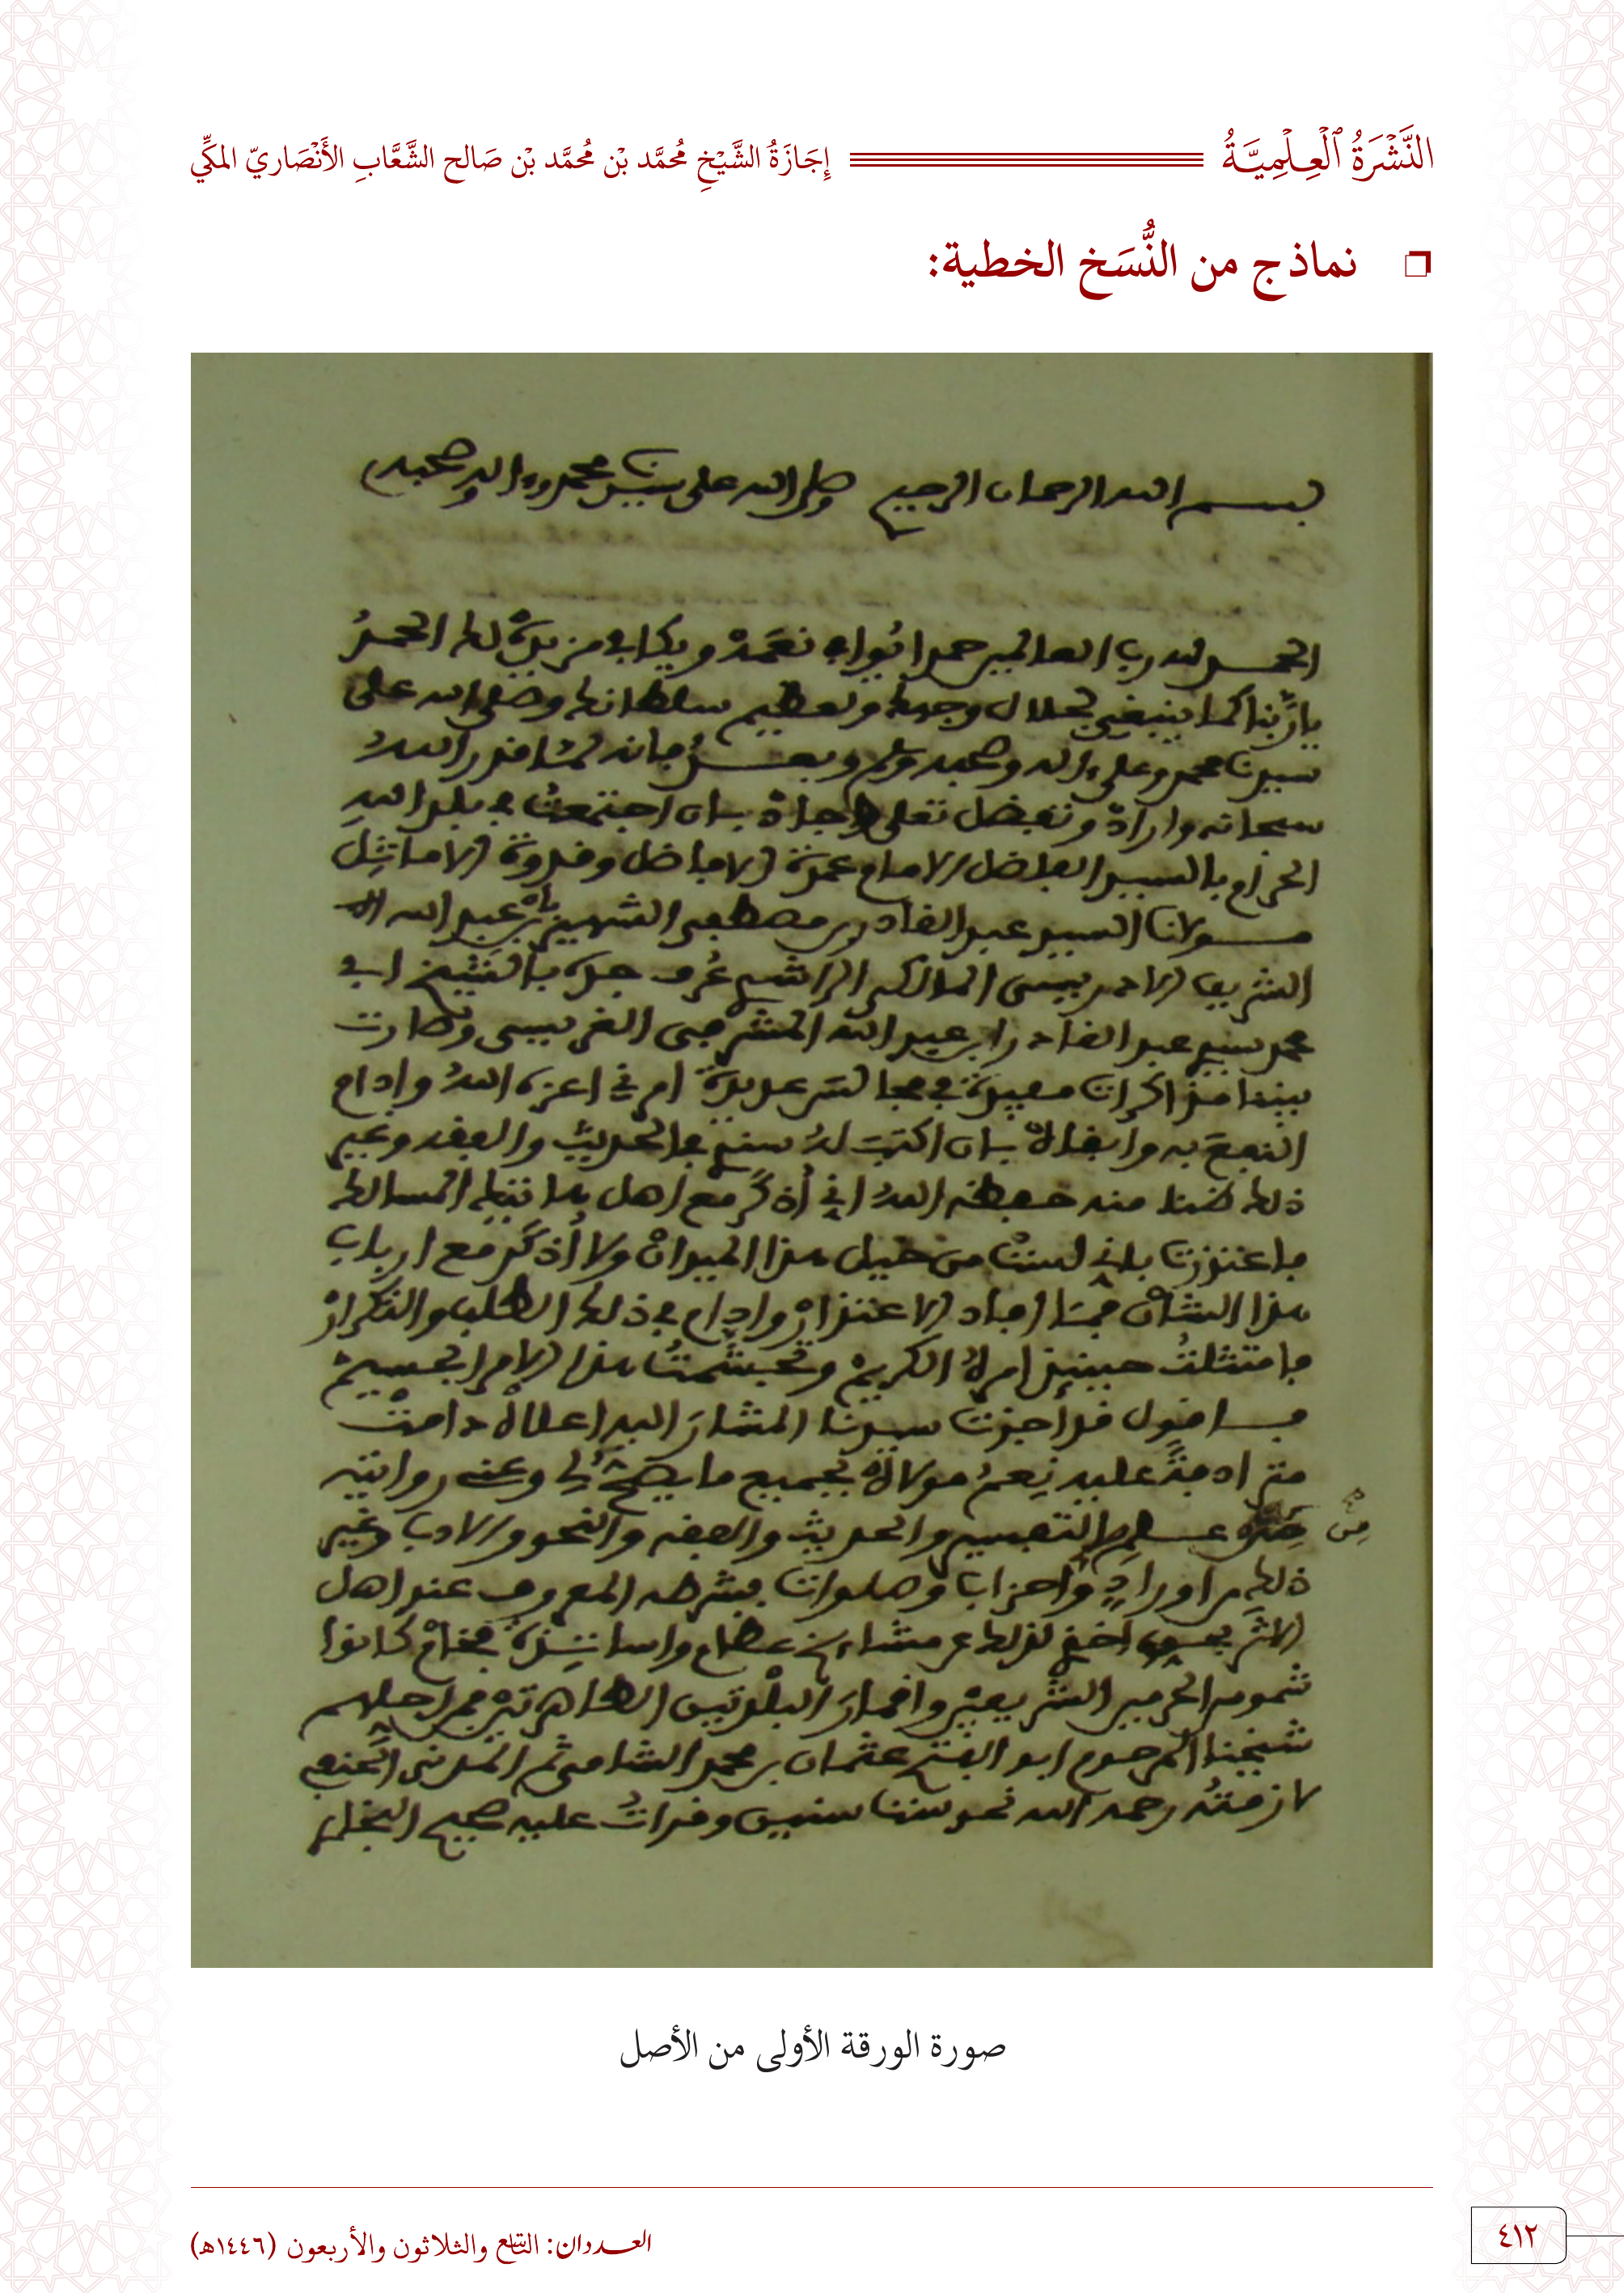 النَّشْرَةُ الْعِلْمِيَّةُ إِجَازَةُ الشَّيْخِ مُحَمَّد بْن مُحَمَّد بْن صَالح الشَّعَّابِ الأَنْصَاريّ المكِّي
نماذج من النُّسَخ الخطية:
بسم الله الرحمان الرحيم وصلى الله على سيدنا محمد وءاله وصحبه
الحمد لله رب العالمين حمدا يُوافي نعَمَه ويكافي مزيدَه لك الحمدُ
ياربَّنا كما ينبغي لجلال وجهك ولعظيم سلطانك وصلى الله على
سيدنا محمد وعلى ءاله وصحبه وسلم وبعدُ فإنه لمّا قدر اللهُ
سبحانه وأراده وتفضل تعلى بأن اجتمعتُ في بلد اللهِ
الحرام بالسيد الفاضل الامام عمدة الافاضل وقدوة الاماثِل
مولانا السيد عبد القادر بن مصطفى الشهير بابن عبد الله
الشريف الادريسى المالكي الراشدي عُرف جدُّه بالشيخ ابي
محمد سيدي عبد القادر ابن عبد الله المشرفى الغريسى وصارت
بيننا مذاكرات مفيدة في مجالس عديدة امرني اعزه اللهُ وادام
النفعَ به وابقاه بان اكتبَ لهُ سندي في الحديث والفقه وغير
ذلك ظنا منه حفظه اللهُ اني أُذكَرُ مع اهل هاتيك المسالك
فاعتذرت باني لست من خيل هذا الميدان ولا أُذكَر مع ارباب
هذا الشان فما أفاد الاعتذار وادام في ذلك الطلب والتكرار
فامتثلتُ حينئذ امره الكريم وتجشَّمتُ هذا الامر الجسيم
فاقول قد أجزت سيدنا المشارَ اليه اعلاه دامتْ
مترادفةً عليه نِعمُ مولاه بجميع ما يصحُّ لي وعني روايته
مِن علم التفسير والحديث والفقه والنحو والادب وغير
ذلك من اورادٍ واحزاب وصلوات بشرطه المعروف عند اهل
الاثر بحسب اخذي لذلك عن مشايخ عظام واساتِذة فخام كانوا
شموس الحرمين الشريفين واقمارَ البلدتين الطاهرتين فمن اجلهم
شيخنا المرحوم ابو الفتح عثمان بن محمد الشامى ثم المدنى الحنفي
لازمتُه رحمه الله نحو ست سنين وقراتُ عليه صحيح البخاري
صورة الورقة الأولى من الأصل
العددان: التاسع والثلاثون والأربعون (١٤٤٦هـ)
٤١٢